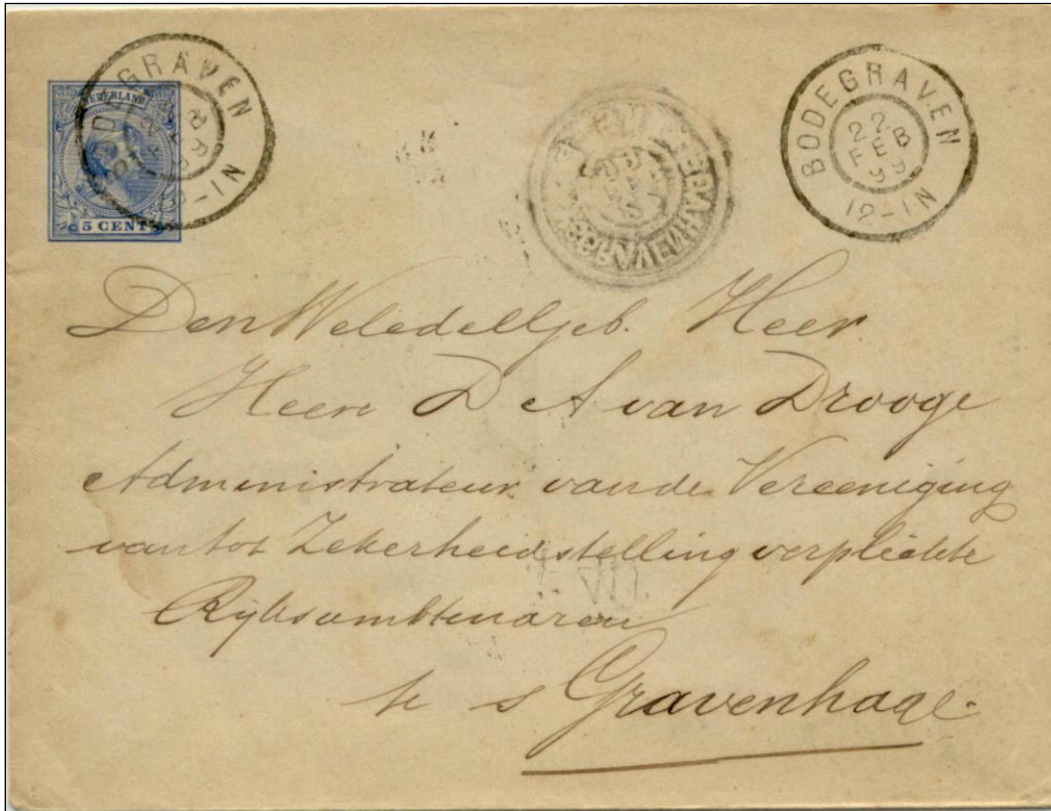 NEDERLAND
5 CENT
BODEGRAVEN
22
FEB
99
12-1N
Den Weledellgeb. Heer
Heere D A van Drooge
Administrateur van de Vereeniging
van tot Zekerheidstelling verplichte
Rijksambtenaren
te s Gravenhage.